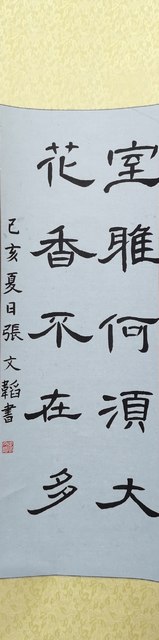 室雅何須大
花香不在多
己亥夏日張文韜書